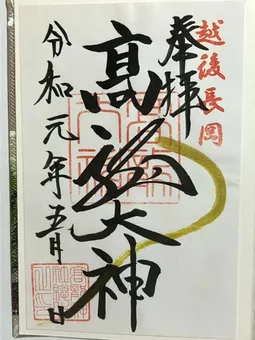 越後長岡
奉拝
髙龍大神
令和元年五月 日